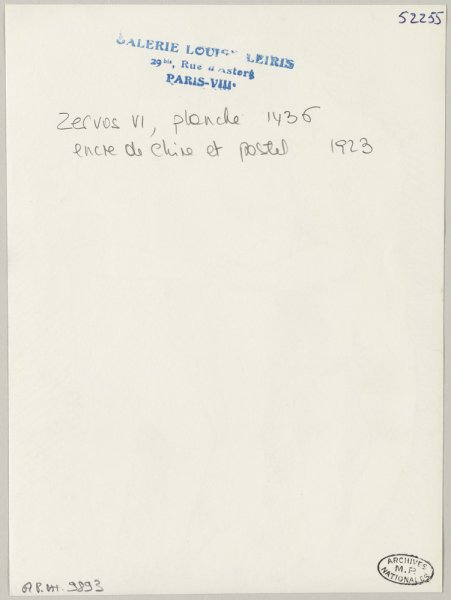 52255
GALERIE LOUISE LEIRIS
29 bis, Rue d'Astorg
PARIS-VIIIe
Zervos VI, planche 1436
encre de Chine et pastel 1923
AP.PH. 9893
ARCHIVES
M.P.
NATIONALES